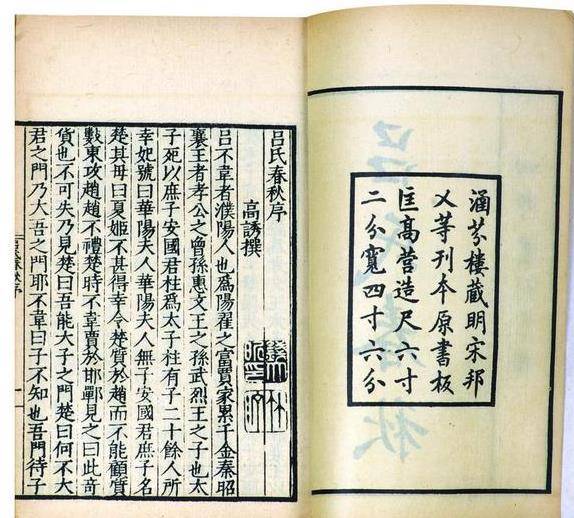 涵芬樓藏明宋邦
乂等刊本原書板
匡高營造尺六寸
二分寬四寸六分
呂氏春秋序
高誘撰
呂不韋者濮陽人也爲陽翟之富賈家累千金秦昭
襄王者孝公之曾孫惠文王之孫武烈王之子也太
子死以庶子安國君柱爲太子柱有子二十餘人所
幸妃號曰華陽夫人華陽夫人無子安國君庶子名
楚其母曰夏姬不甚得幸令楚質於趙而不能顧質
數東攻趙趙不禮楚時不韋賈於邯鄲見之曰此奇
貨也不可失乃見楚曰吾能大子之門楚曰何不大
君之門乃大吾之門耶不韋曰子不知也吾門待子